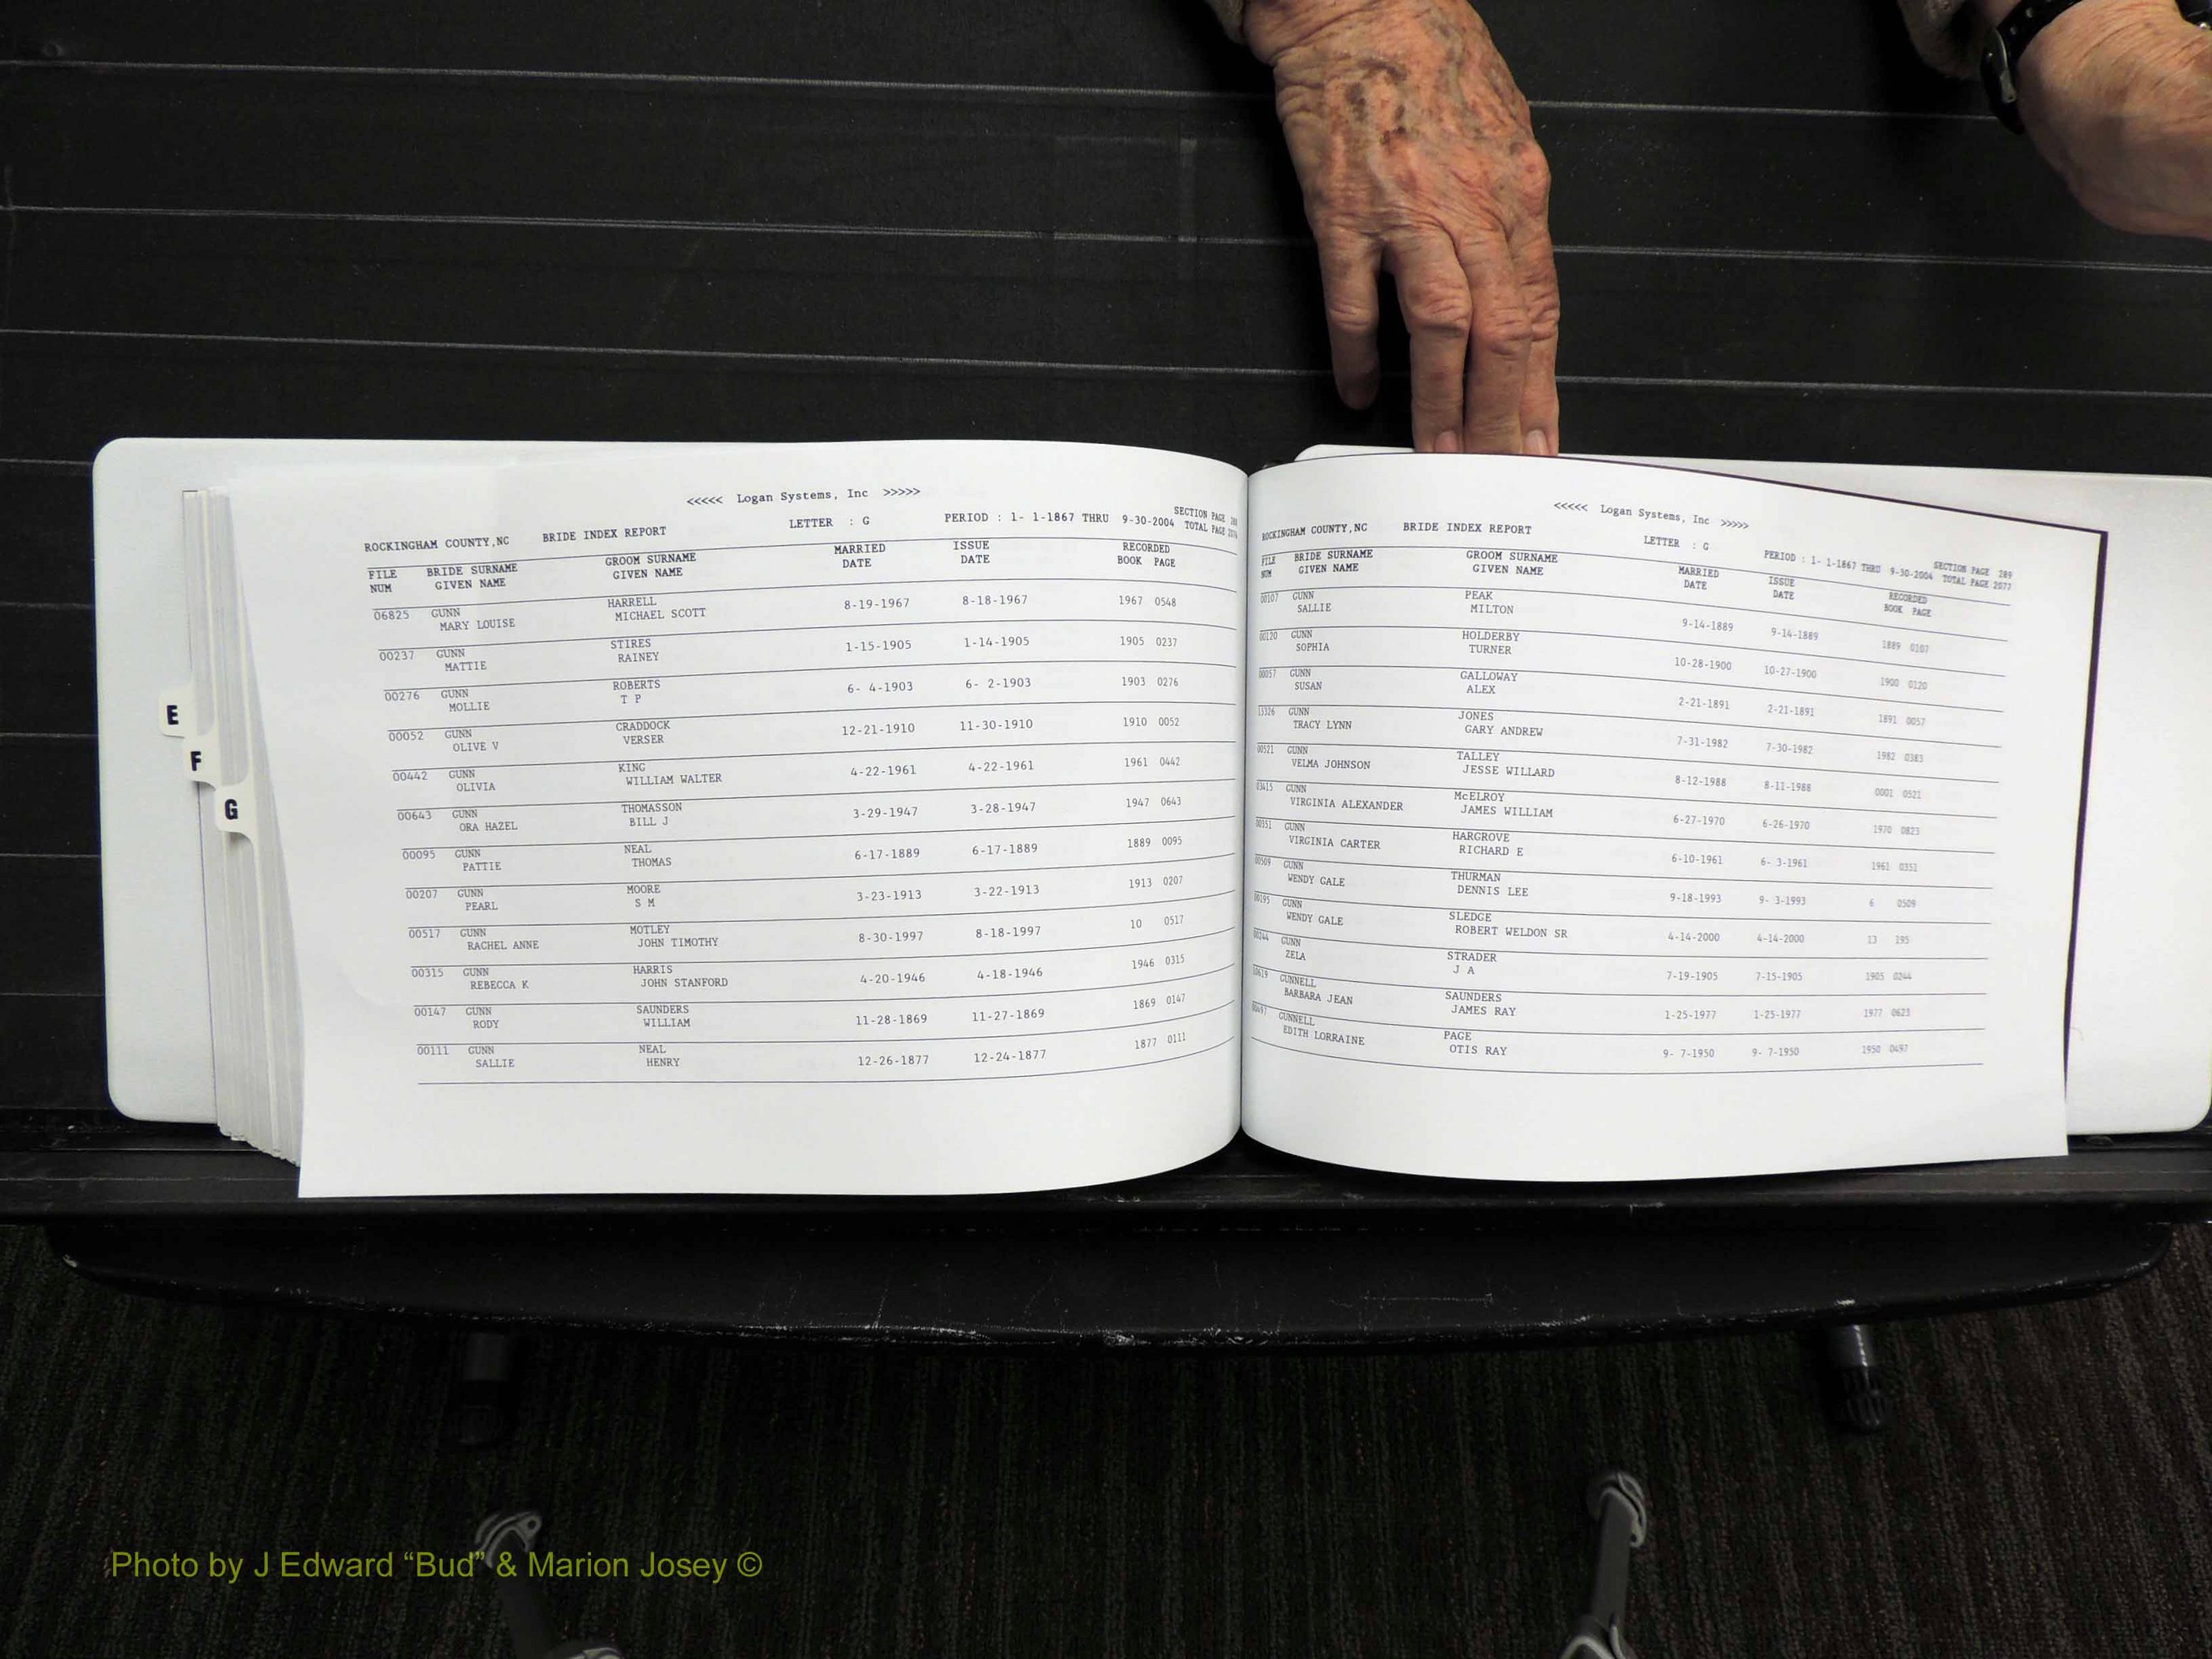 <<<<< Logan Systems, Inc >>>>>
ROCKINGHAM COUNTY,NC BRIDE INDEX REPORT LETTER : G PERIOD : 1- 1-1867 THRU 9-30-2004 SECTION PAGE
TOTAL PAGE
FILE BRIDE SURNAME GROOM SURNAME MARRIED ISSUE RECORDED
NUM GIVEN NAME GIVEN NAME DATE DATE BOOK PAGE
06825 GUNN HARRELL 8-19-1967 8-18-1967 1967 0548
MARY LOUISE MICHAEL SCOTT
00237 GUNN STIRES 1-15-1905 1-14-1905 1905 0237
MATTIE RAINEY
00276 GUNN ROBERTS 6- 4-1903 6- 2-1903 1903 0276
MOLLIE T P
00052 GUNN CRADDOCK 12-21-1910 11-30-1910 1910 0052
OLIVE V VERSER
00442 GUNN KING 4-22-1961 4-22-1961 1961 0442
OLIVIA WILLIAM WALTER
00643 GUNN THOMASSON 3-29-1947 3-28-1947 1947 0643
ORA HAZEL BILL J
00095 GUNN NEAL 6-17-1889 6-17-1889 1889 0095
PATTIE THOMAS
00207 GUNN MOORE 3-23-1913 3-22-1913 1913 0207
PEARL S M
00517 GUNN MOTLEY 8-30-1997 8-18-1997 10 0517
RACHEL ANNE JOHN TIMOTHY
00315 GUNN HARRIS 4-20-1946 4-18-1946 1946 0315
REBECCA K JOHN STANFORD
00147 GUNN SAUNDERS 11-28-1869 11-27-1869 1869 0147
RODY WILLIAM
00111 GUNN NEAL 12-26-1877 12-24-1877 1877 0111
SALLIE HENRY
E
F
G
<<<<< Logan Systems, Inc >>>>>
ROCKINGHAM COUNTY,NC BRIDE INDEX REPORT LETTER : G PERIOD : 1- 1-1867 THRU 9-30-2004 SECTION PAGE 289
TOTAL PAGE 2077
FILE BRIDE SURNAME GROOM SURNAME MARRIED ISSUE RECORDED
NUM GIVEN NAME GIVEN NAME DATE DATE BOOK PAGE
00107 GUNN PEAK 9-14-1889 9-14-1889 1889 0107
SALLIE MILTON
00120 GUNN HOLDERBY 10-28-1900 10-27-1900 1900 0120
SOPHIA TURNER
00057 GUNN GALLOWAY 2-21-1891 2-21-1891 1891 0057
SUSAN ALEX
13326 GUNN JONES 7-31-1982 7-30-1982 1982 0383
TRACY LYNN GARY ANDREW
00521 GUNN TALLEY 8-12-1988 8-11-1988 0001 0521
VELMA JOHNSON JESSE WILLARD
03415 GUNN McELROY 6-27-1970 6-26-1970 1970 0823
VIRGINIA ALEXANDER JAMES WILLIAM
00351 GUNN HARGROVE 6-10-1961 6- 3-1961 1961 0351
VIRGINIA CARTER RICHARD E
00509 GUNN THURMAN 9-18-1993 9- 3-1993 6 0509
WENDY GALE DENNIS LEE
00195 GUNN SLEDGE 4-14-2000 4-14-2000 13 195
WENDY GALE ROBERT WELDON SR
00244 GUNN STRADER 7-19-1905 7-15-1905 1905 0244
ZELA J A
10619 GUNNELL SAUNDERS 1-25-1977 1-25-1977 1977 0623
BARBARA JEAN JAMES RAY
00497 GUNNELL PAGE 9- 7-1950 9- 7-1950 1950 0497
EDITH LORRAINE OTIS RAY
Photo by J Edward “Bud” & Marion Josey ©